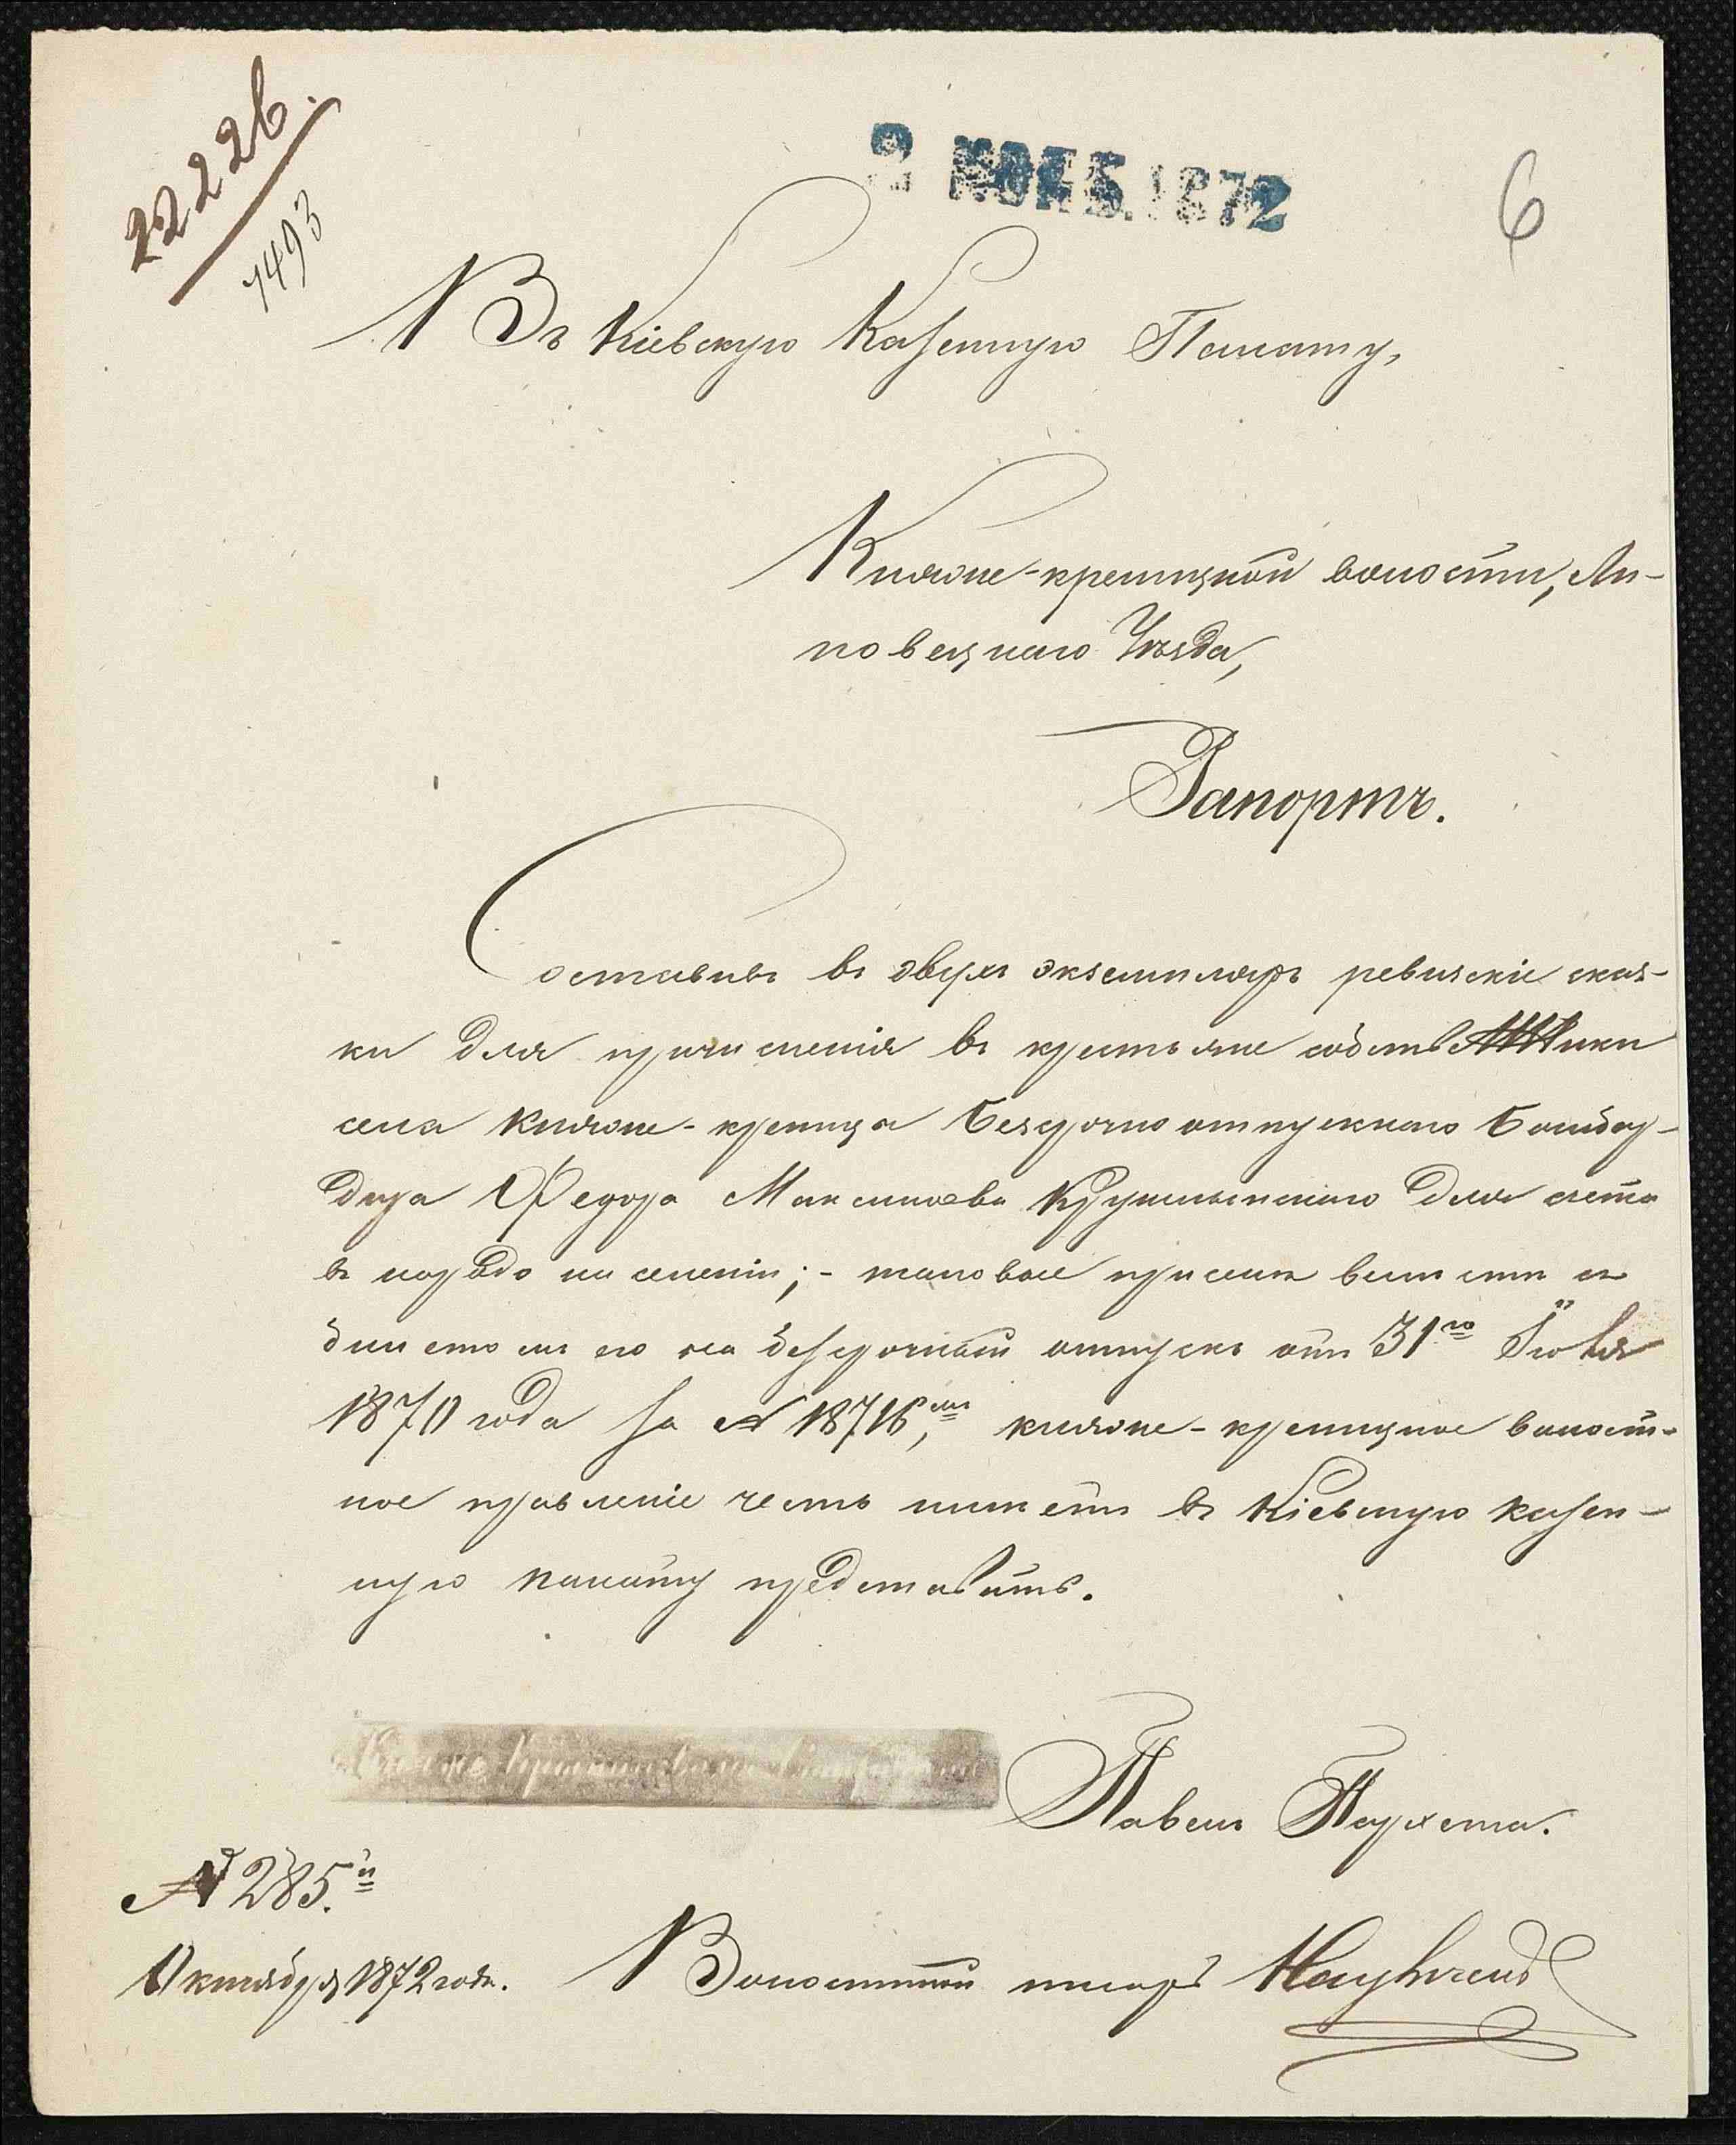 22226.
1493
2 НОЯБ. 1872
6
Въ Кіевскую Казенную Палату,
Княже-крыницкой волости, Ли-
повецкаго Уѣзда,
Рапортъ.
Составивъ въ двухъ экземпляръ ревизскіе сказ-
ки для причисленія въ крестьяне собственики
села Княже-крыница безсрочно отпускного Бомбар-
дира Федора Максимова Крушельницкаго для счета
въ народо населеніи; - таковые при семъ вмѣстѣ съ
билетомъ его на безсрочный отпускъ отъ 31го Іюля
1870 года за № 18716,мъ княже-крыницкое волост-
ное правленіе честь имѣетъ въ Кіевскую казен-
ную палату представить.
Павелъ
№ 285.й
Октября 1872 года.
Волостный писарь